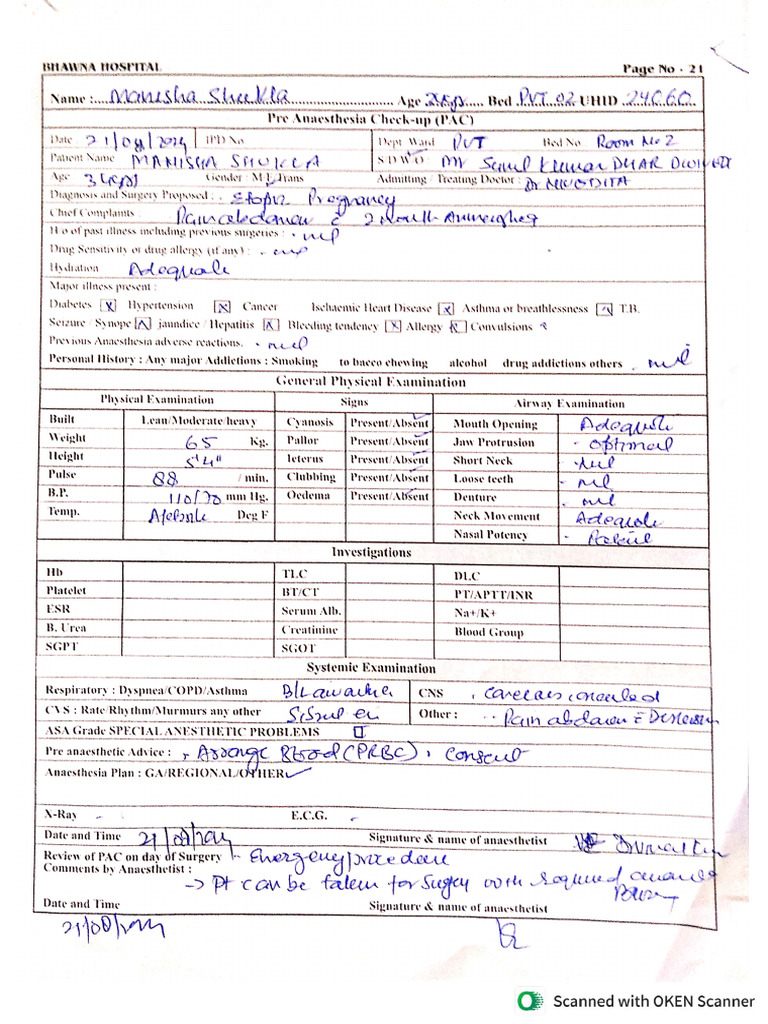 BHAWNA HOSPITAL Page No - 21
Name : Manisha Shukla Age Bed PVT 02 UHID 24060
Pre Anaesthesia Check-up (PAC)
Date 21/08/2024 IPD No Dept Ward PVT Bed No Room No 2
Patient Name MANISHA SHUKLA S D W O Mr Sunil Kumar DHAR DWIVEDI
Age Gender / M F Trans Admitting / Treating Doctor : Dr NIVEDITA
Diagnosis and Surgery Proposed : Pregnancy
Chief Complaints Pain abdomen 2 month
H o of past illness including previous surgeries : - nil
Drug Sensitivity or drug allergy (if any) : - nil
Hydration Adequate
Major illness present :
Diabetes x Hypertension x Cancer Ischaemic Heart Disease x Asthma or breathlessness T.B.
Seizure / Synope jaundice / Hepatitis Bleeding tendency x Allergy Convulsions
Previous Anaesthesia adverse reactions. - nil
Personal History : Any major Addictions : Smoking to bacco chewing alcohol drug addictions others . nil
General Physical Examination
Physical Examination Signs Airway Examination
Built Lean/Moderate/heavy Cyanosis Present/Absent Mouth Opening Adequate
Weight 65 Kg. Pallor Present/Absent Jaw Protrusion - optimal
Height 5'4" Icterus Present/Absent Short Neck - Nil
Pulse 88 / min. Clubbing Present/Absent Loose teeth - nil
B.P. 110/70 mm Hg. Oedema Present/Absent Denture - nil
Temp. Afebrile Deg F Neck Movement Adequate
Nasal Potency -
Investigations
Hb TLC DLC
Platelet BT/CT PT/APTT/INR
ESR Serum Alb. Na+/K+
B. Urea Creatinine Blood Group
SGPT SGOT
Systemic Examination
Respiratory : Dyspnea/COPD/Asthma CNS
CVS : Rate Rhythm/Murmurs any other Other : Pain abdomen
ASA Grade SPECIAL ANESTHETIC PROBLEMS
Pre anaesthetic Advice : Arrange Blood (PRBC), Consent
Anaesthesia Plan : GA/REGIONAL/OTHER
X-Ray - E.C.G. -
Date and Time 21/08/2024 Signature & name of anaesthetist
Review of PAC on day of Surgery - Emergency procedure
Comments by Anaesthetist :
→ Pt can be taken for Surgery with required
Date and Time Signature & name of anaesthetist
21/08/2024
Scanned with OKEN Scanner